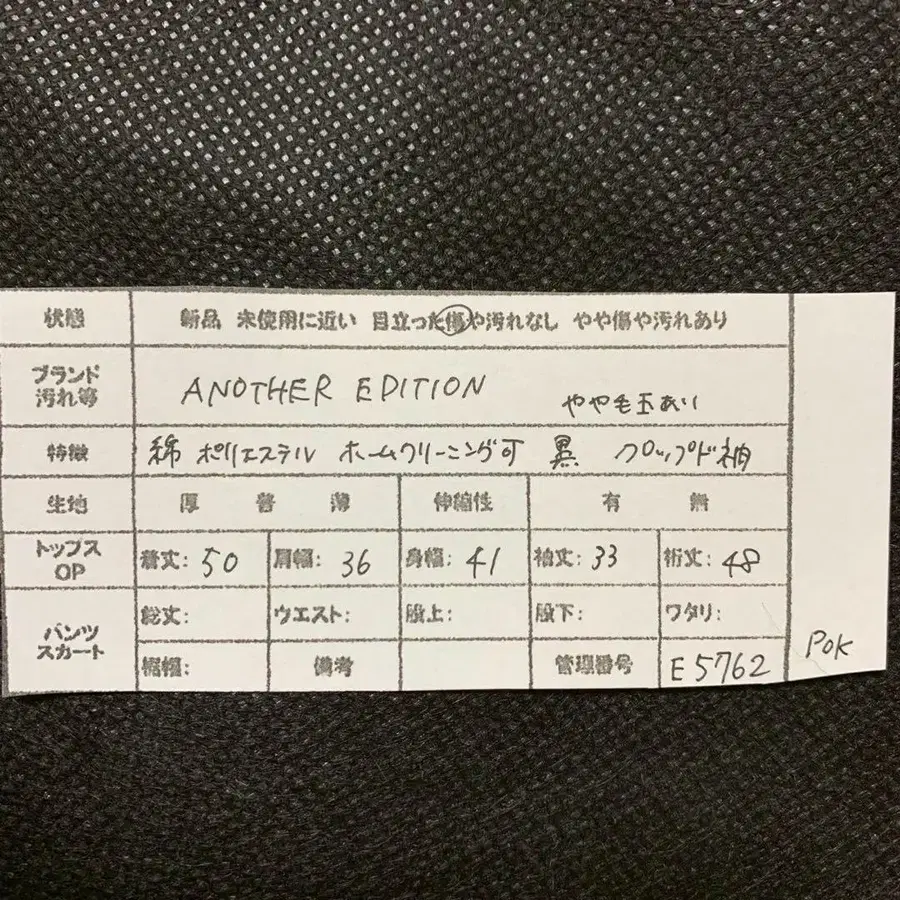 状態 新品 未使用に近い 目立った傷や汚れなし やや傷や汚れあり
ブランド
汚れ等 ANOTHER EDITION やや毛玉あり
特徴 綿 ポリエステル ホームクリーニング可 黒 クロップド袖
生地 厚 普 薄 伸縮性 有 無
トップス
OP 着丈: 50 肩幅: 36 身幅: 41 袖丈: 33 裄丈: 48
パンツ
スカート 総丈: ウエスト: 股上: 股下: ワタリ:
裾幅: 備考 管理番号 E5762
POK